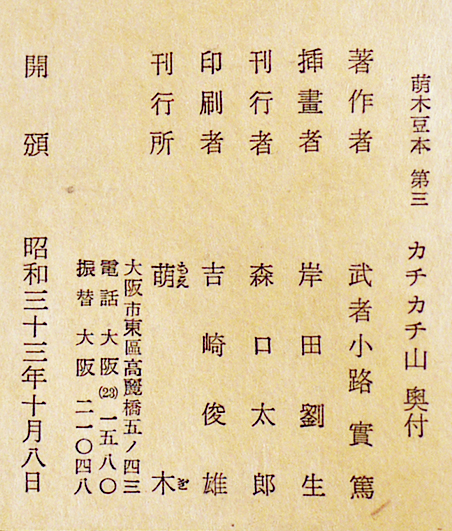 萌木豆本 第三 カチカチ山 奥付
著作者 武者小路實篤
挿畫者 岸田劉生
刊行者 森口太郎
印刷者 吉崎俊雄
刊行所 萌木
もえ ぎ
大阪市東區高麗橋五ノ四三
電話 大阪(23)一五八〇
振替 大阪 二一〇四八
開頒 昭和三十三年十月八日